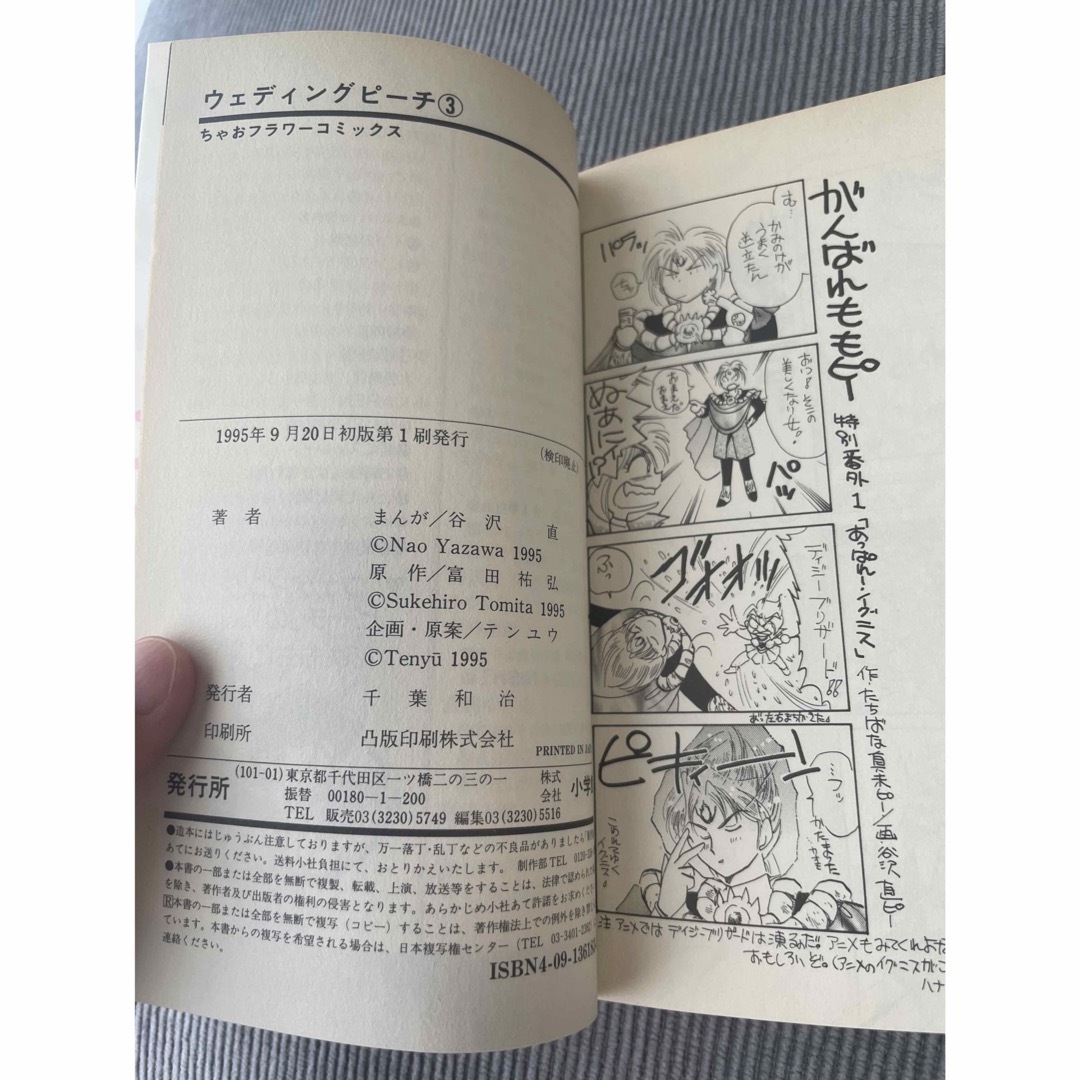 ウェディングピーチ③
ちゃおフラワーコミックス
1995年9月20日初版第1刷発行
(検印廃止)
著者
まんが/谷沢 直
©Nao Yazawa 1995
原作/富田祐弘
©Sukehiro Tomita 1995
企画・原案/テンユウ
©Tenyū 1995
発行者 千葉和治
印刷所 凸版印刷株式会社
PRINTED IN JA
発行所
(101-01)東京都千代田区一ツ橋二の三の一
振替 00180-1-200
TEL 販売03(3230)5749 編集03(3230)5516
株式会社
小学
●造本にはじゅうぶん注意しておりますが、万一落丁・乱丁などの不良品がありましたら
あてにお送りください。送料小社負担にて、おとりかえいたします。 制作部TEL 0120-
●本書の一部または全部を無断で複製、転載、上演、放送等をすることは、法律で認められた
を除き、著作者及び出版者の権利の侵害となります。あらかじめ小社あて許諾をお求めくだ
Ⓡ本書の一部または全部を無断で複写(コピー)することは、著作権法上での例外を除き
ています。本書からの複写を希望される場合は、日本複写権センター(TEL 03-3401-
連絡ください。
ISBN4-09-1361
がんばれももピー
特別番外1「あっぱれ!イグニス」
作/たちばな真未ピー/画谷沢直ピー
む…
かみのけが
うまく
立たん
パラッ
おっ!その
美しくなり
おまえだ
おまえ
ぬぁに!?
ペッ
デイジーブリザード!!
ゴオオオッ
ふっ
あっ左右まちがえた。
ピキィーン
…フッ
かたまった
こわれてゆく
イグニス。
注 アニメではデイジーブリザードは凍るのだ。アニメもみてくれよな
おもしろいぞ。(アニメのイグニスがこ
ハナ